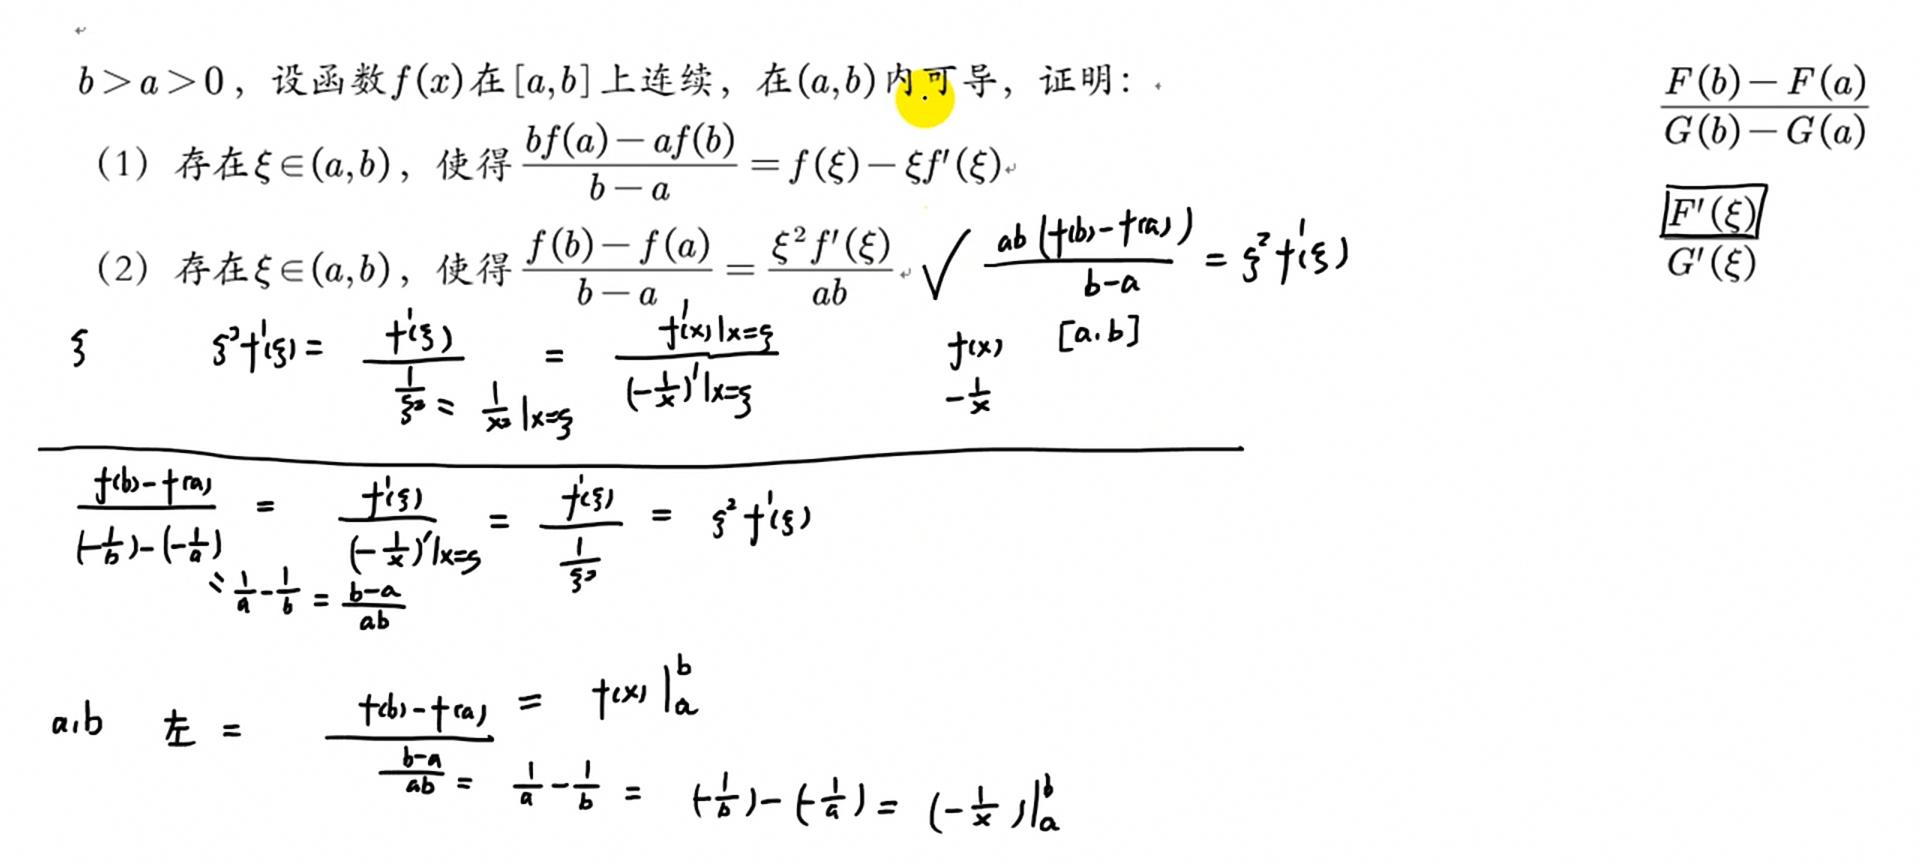 b>a>0，设函数f(x)在[a,b]上连续，在(a,b)内可导，证明：
（1）存在ξ∈(a,b)，使得 (bf(a)-af(b))/(b-a) = f(ξ)-ξf'(ξ)
（2）存在ξ∈(a,b)，使得 (f(b)-f(a))/(b-a) = ξ²f'(ξ)/(ab) √ ab(f(b)-f(a))/(b-a) = ξ²f'(ξ)
(F(b)-F(a))/(G(b)-G(a))
F'(ξ)/G'(ξ)
ξ ξ²f'(ξ) = f'(ξ)/(1/ξ² = 1/x²|x=ξ) = f'(x)|x=ξ/(-1/x)'|x=ξ f(x) [a,b]
-1/x
(f(b)-f(a))/((-1/b)-(-1/a)) = f'(ξ)/(-1/x)'|x=ξ = f'(ξ)/(1/ξ²) = ξ²f'(ξ)
= 1/a-1/b = (b-a)/ab
a,b 左 = (f(b)-f(a))/((b-a)/ab) = f(x)|_a^b
= 1/a-1/b = (-1/b)-(-1/a) = (-1/x)|_a^b